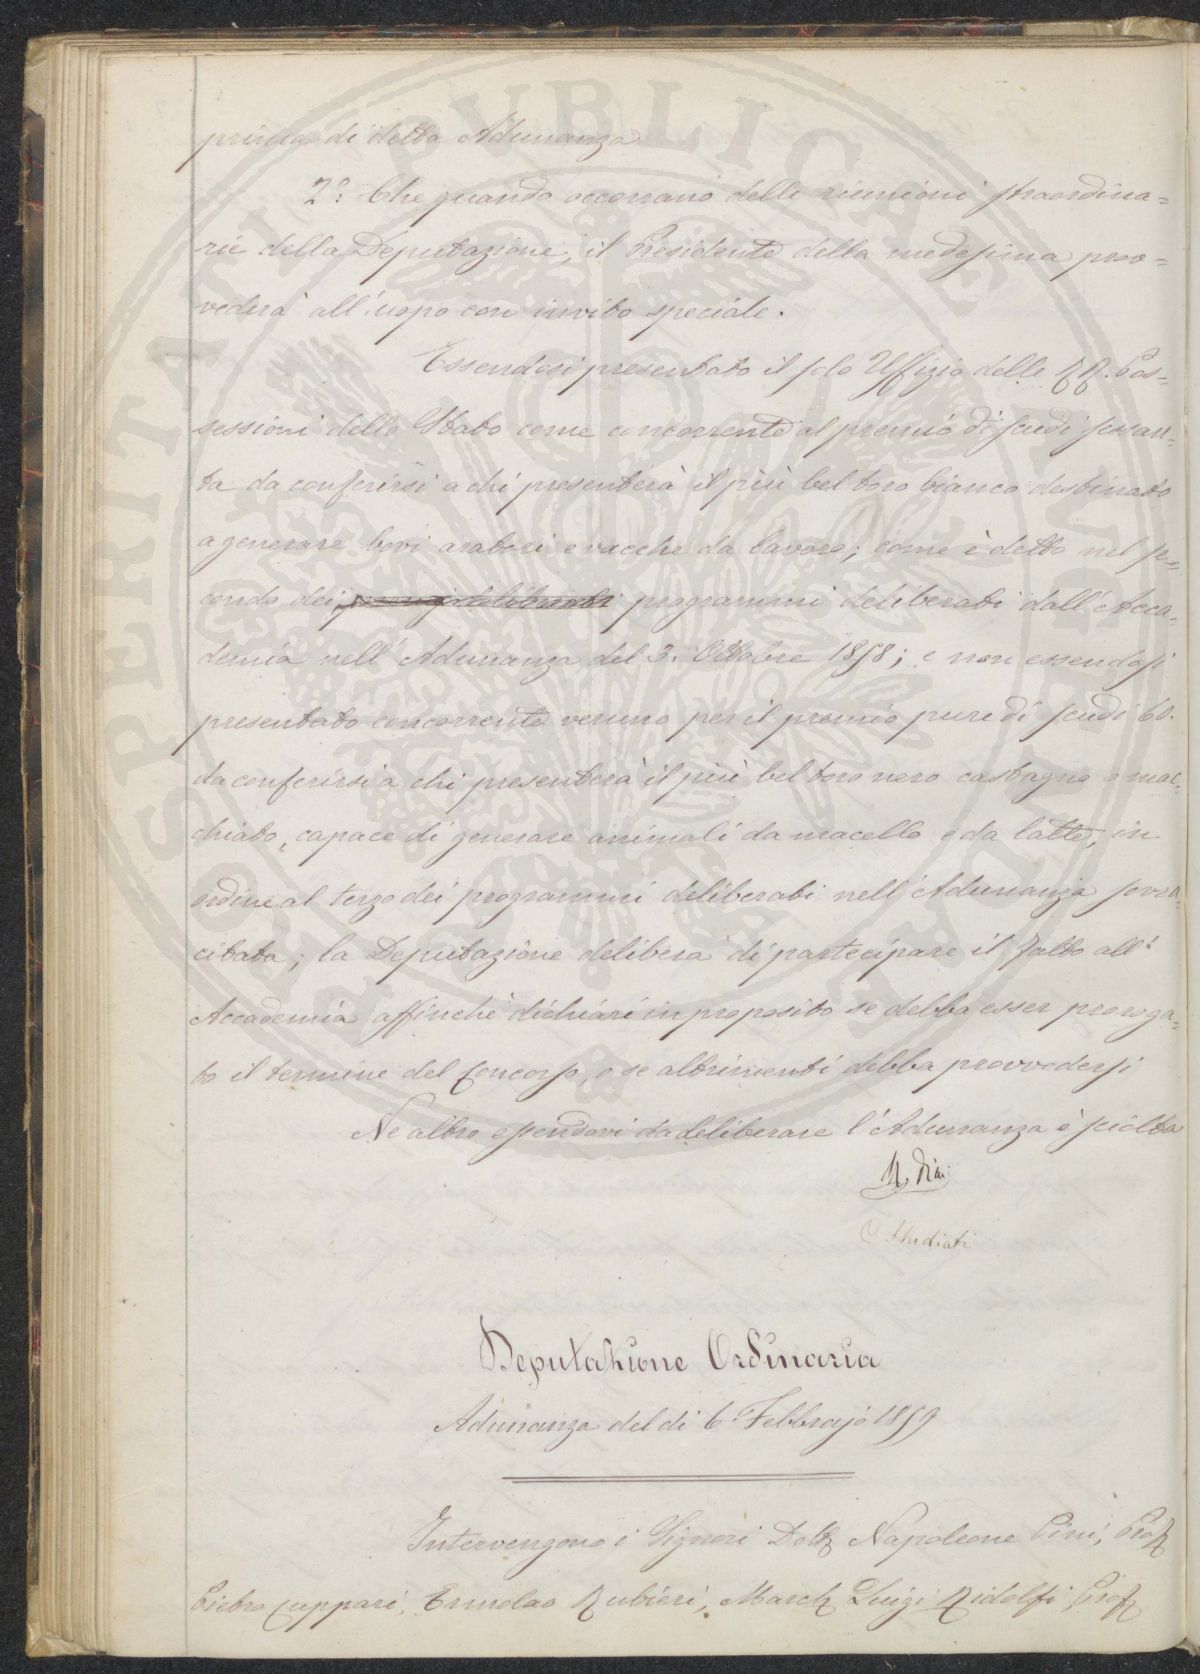 prima di detta Adunanza
2º: Che quando occorrano delle riunioni straordina=
rie della Deputazione, il Presidente della medesima prov=
vederà all'uopo con invito speciale.
Essendosi presentato il solo Uffizio delle RR. Pos=
sessioni dello Stato come concorrente al premio di scudi sessan=
ta da conferirsi a chi presenterà il più bel toro bianco destinato
a generare bovi aratori e vacche da lavoro; come è detto nel se=
condo dei programmi deliberati dall'Acca=
demia nell'Adunanza del 3. Ottobre 1858; e non essendosi
presentato concorrente veruno per il premio pure di scudi 60.
da conferirsi a chi presenterà il più bel toro nero castagno o mac=
chiato, capace di generare animali da macello e da latte, in
ordine al terzo dei programmi deliberati nell'Adunanza sovra
citata; la Deputazione delibera di partecipare il fatto all'
Accademia affinchè dichiari in proposito se debba esser proroga=
to il termine del Concorso, o se altrimenti debba provvedersi
Ne altro essendovi da deliberare l'Adunanza è sciolta
C Studiati
Deputazione Ordinaria
Adunanza del di 6. Febbrajo 1859
Intervengono i Signori Dott Napoleone Pini, Prof
Pietro Cuppari, Ermolao Rubieri, March Luigi Ridolfi, Prof
PROSPERITATI PVBLICAE AVGENDAE